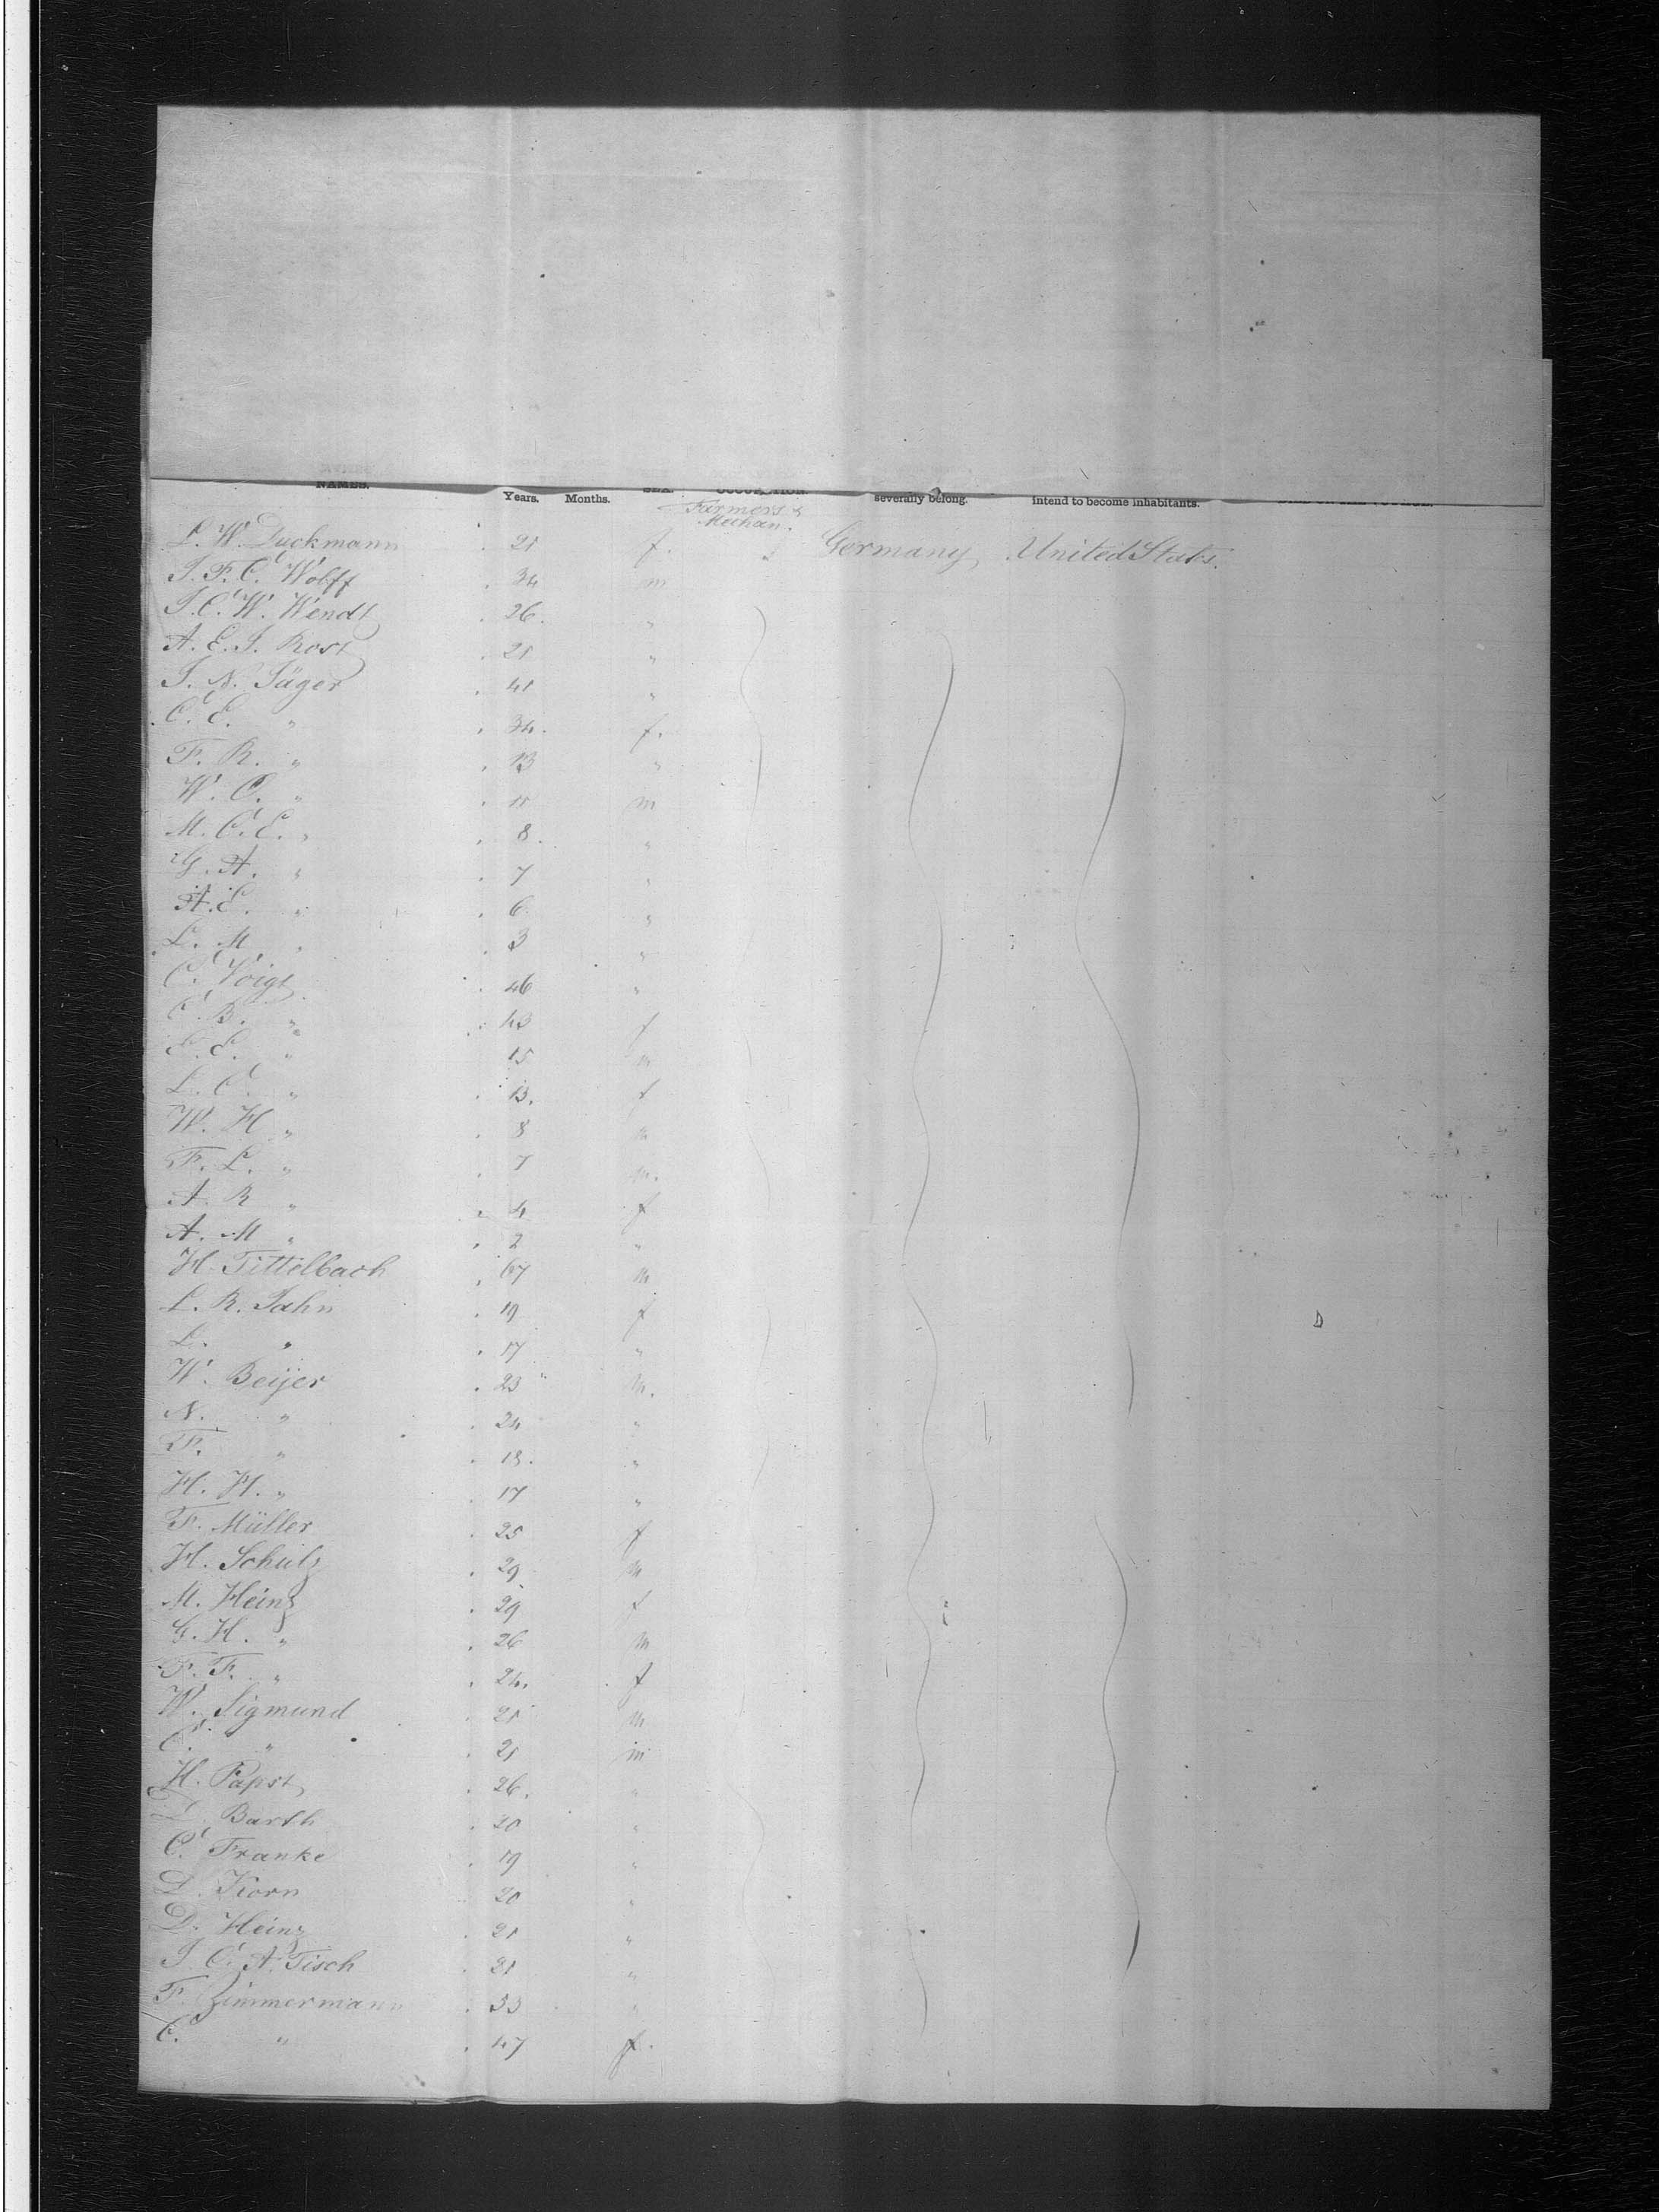 NAMES. Years. Months. SEX. OCCUPATION. severally belong. intend to become inhabitants.
Farmers &
Mechan.
L. W. Duckmann . 21 f. " Germany United States.
J. F. C. Wolff . 34 m
J. C. W. Wendt . 26. "
A. E. J. Rost . 21 "
J. N. Jäger . 41 "
C. E. " . 34. f.
F. R. " . 13 "
W. C. " . 11 m
M. C. E. " . 8. "
G. A. " . 7 "
A. E. " . 6 "
L. M " . 3 "
C. Voigt . 46 "
C. B. " . 43 f
E. " 15 m
L. C. " . 13. f
W. H " . 8 m
F. L. " . 7 m.
A. R " . 4 f
A. M " . 2 "
H. Tittelbach . 67 m
L. R. Jahn . 19 f
L. " . 17 "
W. Beijer . 23 " m.
N. " . 24 "
F. " . 18. "
H. H. " . 17 "
F. Müller . 25 f
H. Schulz . 29 m
M. Heinz . 29 f
G. H. " . 26 m
F. F. " . 24. f
W. Sigmund . 21 m
C. " . 21 m
H. Papst . 26. "
D. Barth . 20 "
C. Franke . 19 "
D. Korn 20 "
D. Heinz . 21 "
J. C. A. Tisch . 21 "
F. Zimmermann . 53 "
C. " . 47 f.